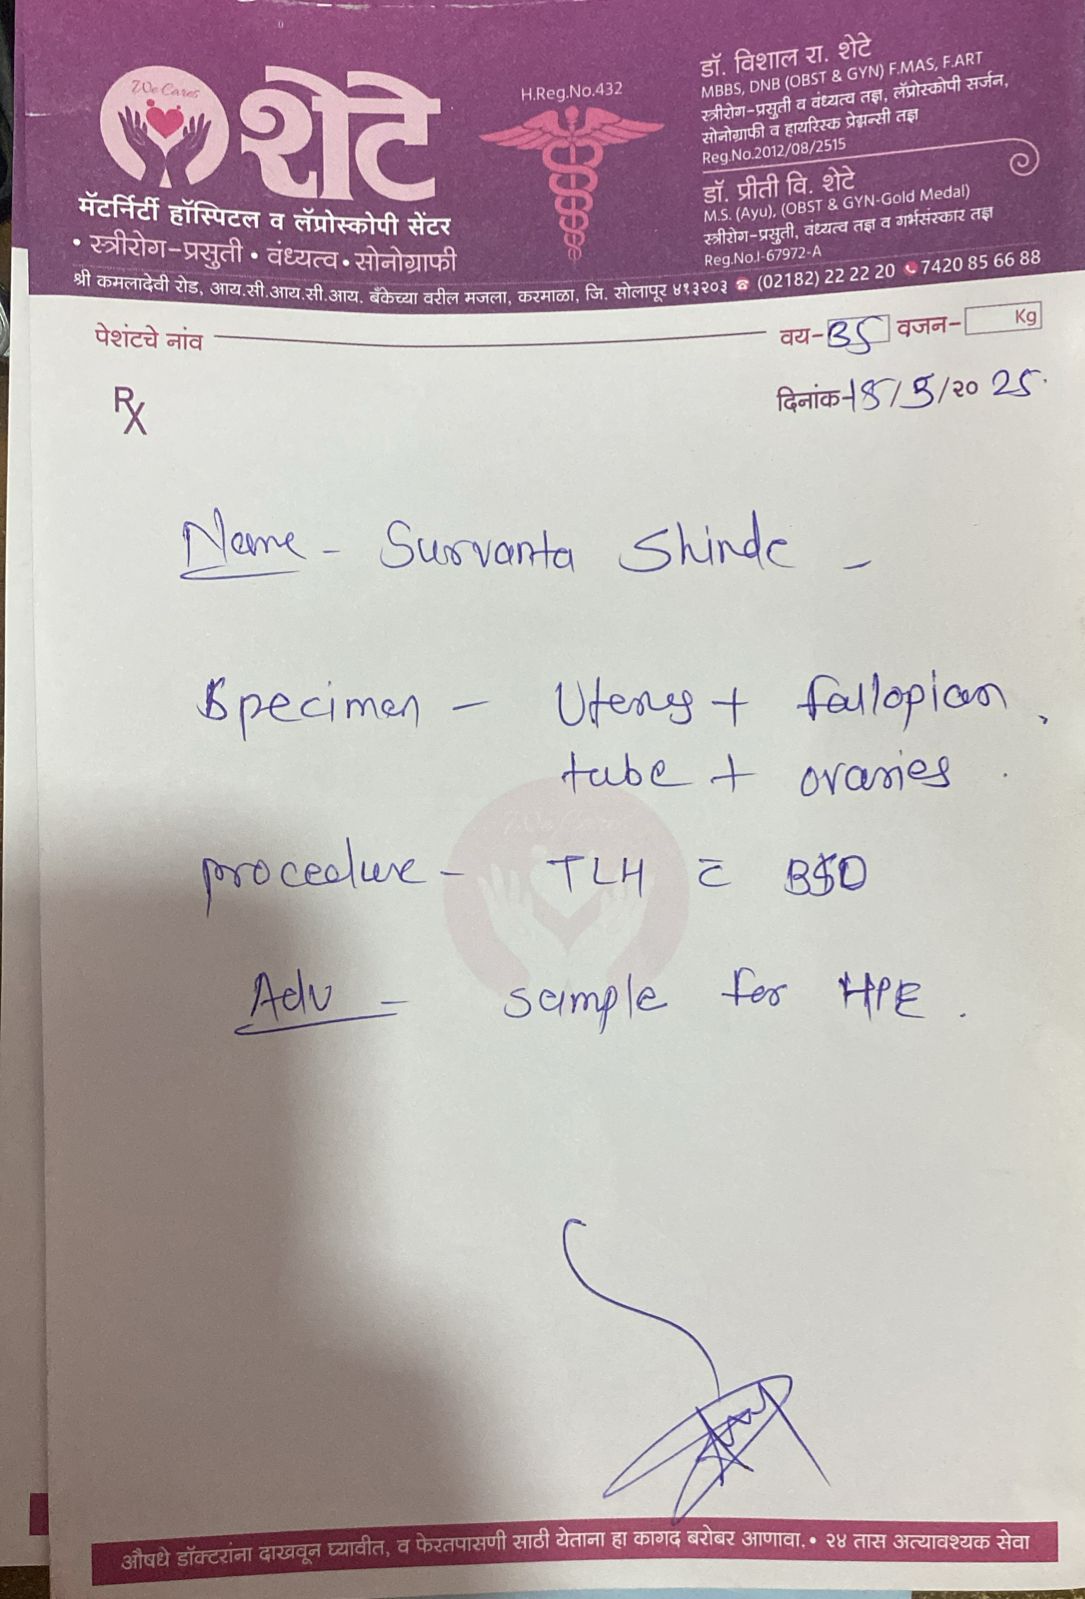 We Cares
शेटे
मॅटर्निटी हॉस्पिटल व लॅप्रोस्कोपी सेंटर
• स्त्रीरोग-प्रसुती • वंध्यत्व • सोनोग्राफी
H.Reg.No.432
डॉ. विशाल रा. शेटे
MBBS, DNB (OBST & GYN) F.MAS, F.ART
स्त्रीरोग-प्रसुती व वंध्यत्व तज्ञ, लॅप्रोस्कोपी सर्जन,
सोनोग्राफी व हायरिस्क प्रेग्नन्सी तज्ञ
Reg.No.2012/08/2515
डॉ. प्रीती वि. शेटे
M.S. (Ayu), (OBST & GYN-Gold Medal)
स्त्रीरोग-प्रसुती, वंध्यत्व तज्ञ व गर्भसंस्कार तज्ञ
Reg.No.I-67972-A
श्री कमलादेवी रोड, आय.सी.आय.सी.आय. बँकेच्या वरील मजला, करमाळा, जि. सोलापूर ४१३२०३ ☎ (02182) 22 22 20 7420 85 66 88
पेशंटचे नांव वय- 35 वजन- Kg
Rx दिनांक- /20 25.
Name - Survanta Shinde -
Specimen - Uterus + fallopian
tube + ovaries
procedure - TLH c̄ BSO
Adv - sample for HPE.
औषधे डॉक्टरांना दाखवून घ्यावीत, व फेरतपासणी साठी येताना हा कागद बरोबर आणावा. • २४ तास अत्यावश्यक सेवा